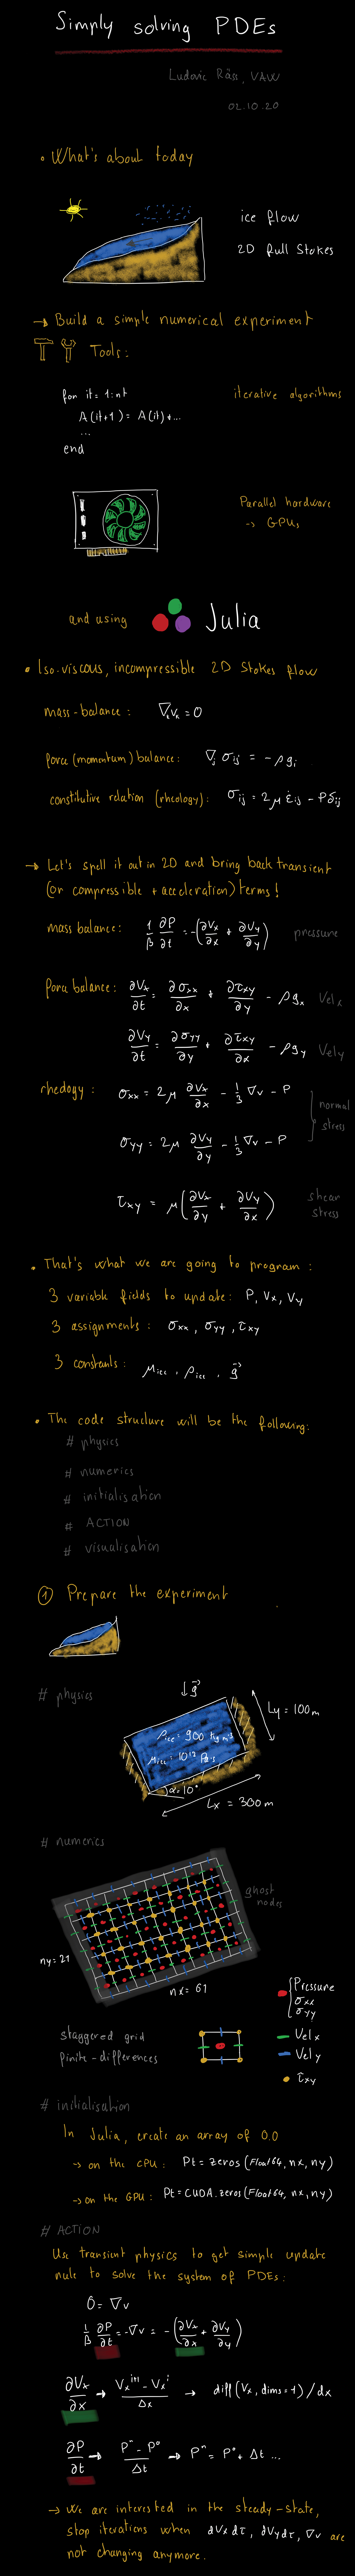 Simply solving PDEs
Ludovic Räss, VAW
02.10.20
• What's about today
ice flow
2D Full Stokes
→ Build a simple numerical experiment
Tools:
for it = 1:nt
A(it+1) = A(it)+...
...
end
iterative algorithms
Parallel hardware
→ GPUs
and using Julia
• Iso-viscous, incompressible 2D Stokes flow
mass-balance : ∇ₖvₖ = 0
force (momentum) balance: ∇ⱼ σij = -ρgi
constitutive relation (rheology): σij = 2μ ε̇ij - Pδij
→ Let's spell it out in 2D and bring back transient
(or compressible + acceleration) terms!
mass balance: 1/β ∂P/∂t = -(∂Vx/∂x + ∂Vy/∂y) pressure
force balance: ∂Vx/∂t = ∂σxx/∂x + ∂τxy/∂y - ρgx Vel x
∂Vy/∂t = ∂σyy/∂y + ∂τxy/∂x - ρgy Vel y
rheology: σxx = 2μ ∂Vx/∂x - 1/3 ∇v - P
σyy = 2μ ∂Vy/∂y - 1/3 ∇v - P
normal
stress
τxy = μ(∂Vx/∂y + ∂Vy/∂x)
shear
stress
• That's what we are going to program:
3 variable fields to update: P, Vx, Vy
3 assignments: σxx, σyy, τxy
3 constants: μice, ρice, g⃗
• The code structure will be the following:
# physics
# numerics
# initialisation
# ACTION
# visualisation
① Prepare the experiment
# physics
↓g⃗
Ly = 100m
ρice = 900 kg m⁻³
μice = 10¹² Pa·s
α=10°
Lx = 300m
# numerics
ghost
nodes
ny=21
nx= 61
Pressure
σxx
σyy
staggered grid
finite-differences
Vel x
Vel y
τxy
# initialisation
In Julia, create an array of 0.0
→ on the CPU: Pt = zeros(Float64, nx, ny)
→ on the GPU: Pt = CUDA.zeros(Float64, nx, ny)
# ACTION
Use transient physics to get simple update
rule to solve the system of PDEs:
0 = ∇v
1/β ∂P/∂t = -∇v = -(∂Vx/∂x + ∂Vy/∂y)
∂Vx/∂x → (Vx^i+1 - Vx^i)/Δx → diff(Vx, dims=1)/dx
∂P/∂t → (Pⁿ - P⁰)/Δt → Pⁿ = P⁰ + Δt ...
→ We are interested in the steady-state,
stop iterations when dVxdτ, dVydτ, ∇v are
not changing anymore.